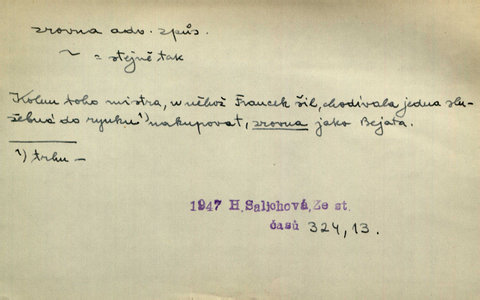 zrovna adv. způs.
~ = stejně tak
Kolem toho mistra, u něhož Francek šil, chodívala jedna slu-
žebná do rynku¹) nakupovat, zrovna jako Bejata.
¹) trhu —
1947 H.Saljchová, Ze st.
časů 324,13.